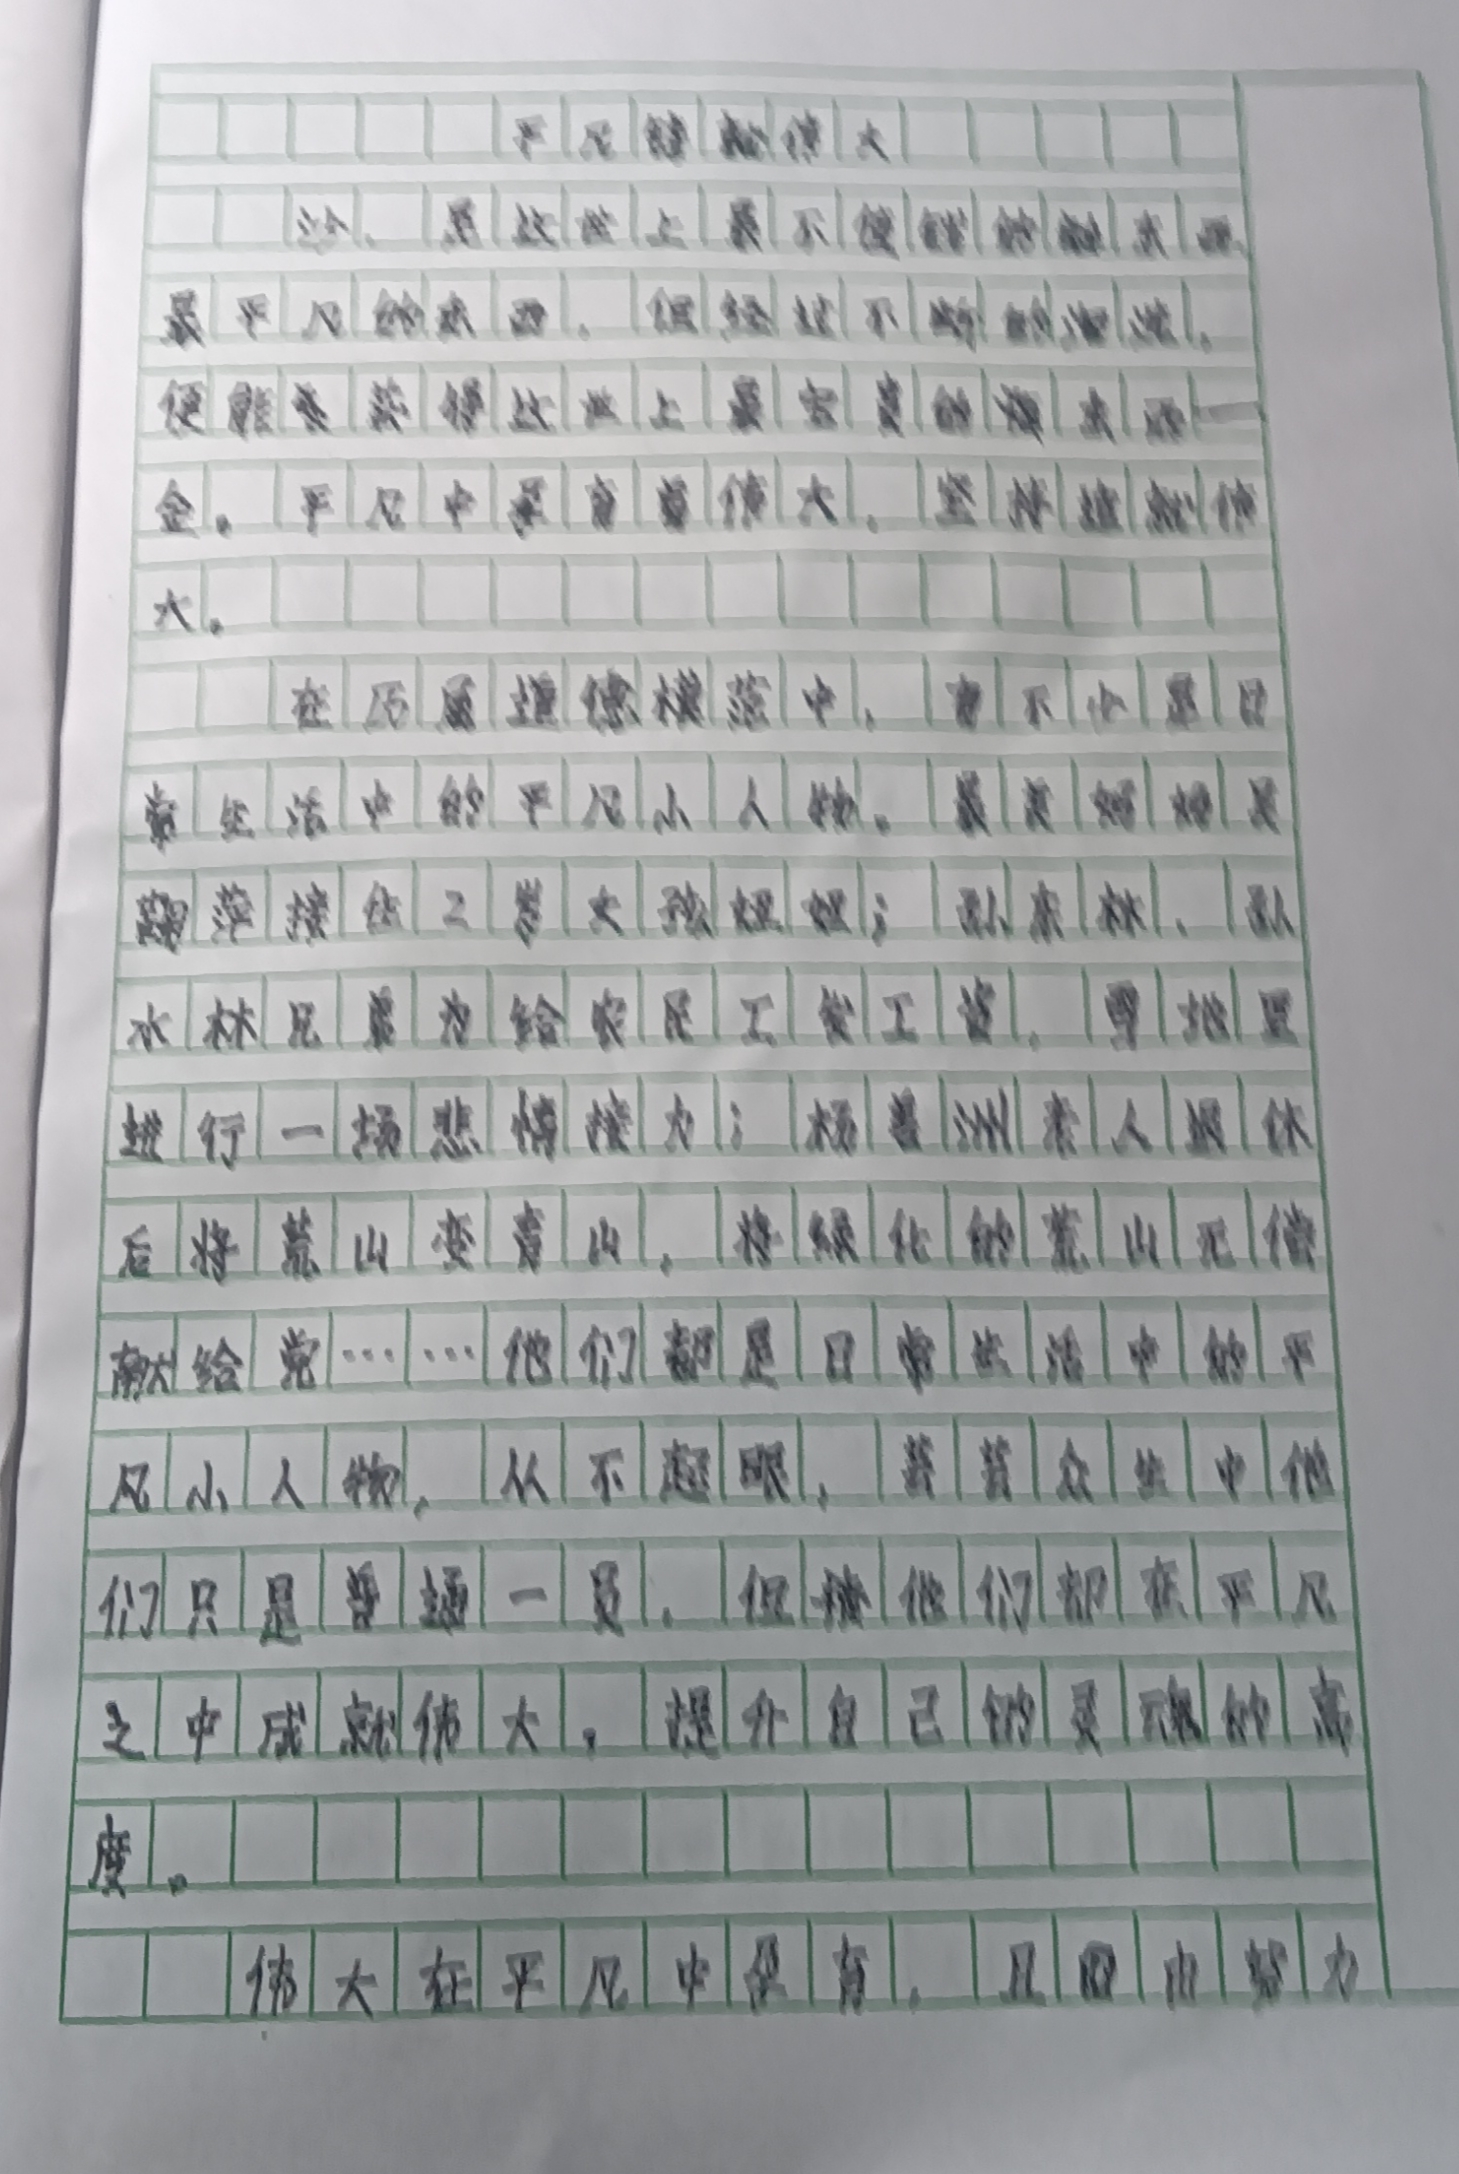 平凡铸就伟大
沙，是这世上最不值钱的种东西、
最平凡的东西，但经过不断的淘洗，
便能获得这世上最宝贵的东西一
金。平凡中孕育着伟大，坚持造就伟
大。
在历届道德模范中，有不少是日
常生活中的平凡小人物。最美妈妈吴
菊萍接住2岁大孩妞妞；孙东林、孙
水林兄弟为给农民工发工资，雪地里
进行一场悲情接力；杨善洲老人退休
后将荒山变青山，将绿化的荒山无偿
献给党……他们都是日常生活中的平
凡小人物，从不起眼，芸芸众生中他
们只是普通一员，但他们却在平凡
之中成就伟大，提升自己的灵魂的高
度。
伟大在平凡中孕育，且因由努力